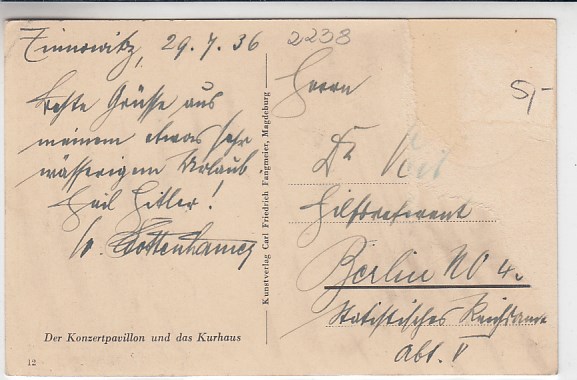 Zinnowitz, 29.7.36
2238
Beste Grüsse aus
meinem etwas sehr
wässerigem Urlaub
Heil Hitler!
Herrn
5,-
Dr
Hilfsreferent
Berlin NO 4.
Statistisches Reichsamt
Abt. V
Kunstverlag Carl Friedrich Fangmeier, Magdeburg
Der Konzertpavillon und das Kurhaus
12